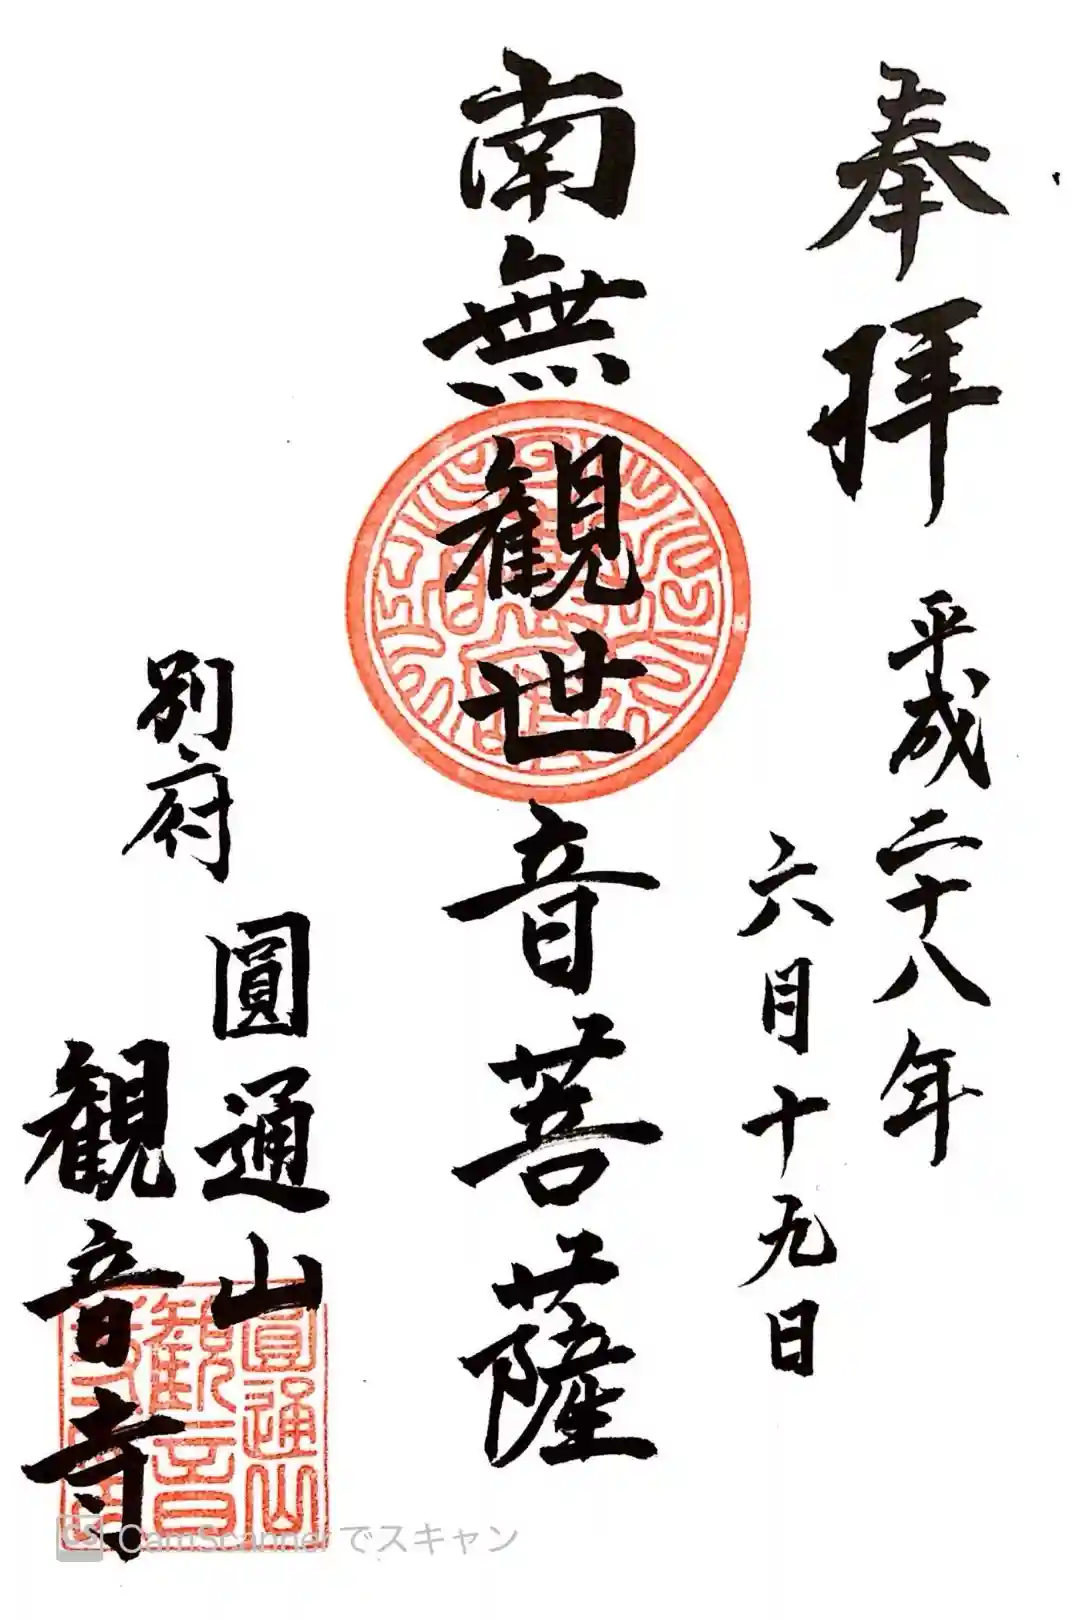 奉拝
平成二十八年
六月十九日
南無観世音菩薩
別府
圓通山
観音寺
圓通山
観音
CS CamScanner でスキャン